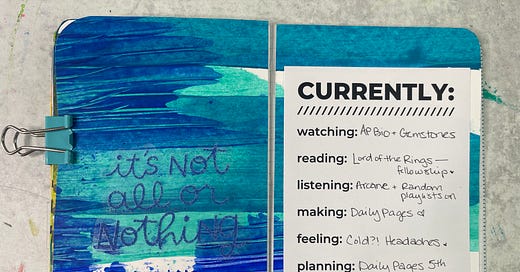 it's Not
all or
Nothing
CURRENTLY:
watching: AP Bio + Gemstones
reading: Lord of the Rings —
fellowship
listening: Arcane + Random
playlists on
making: Daily Pages
feeling: Cold?! Headaches
planning: Daily Pages 5th